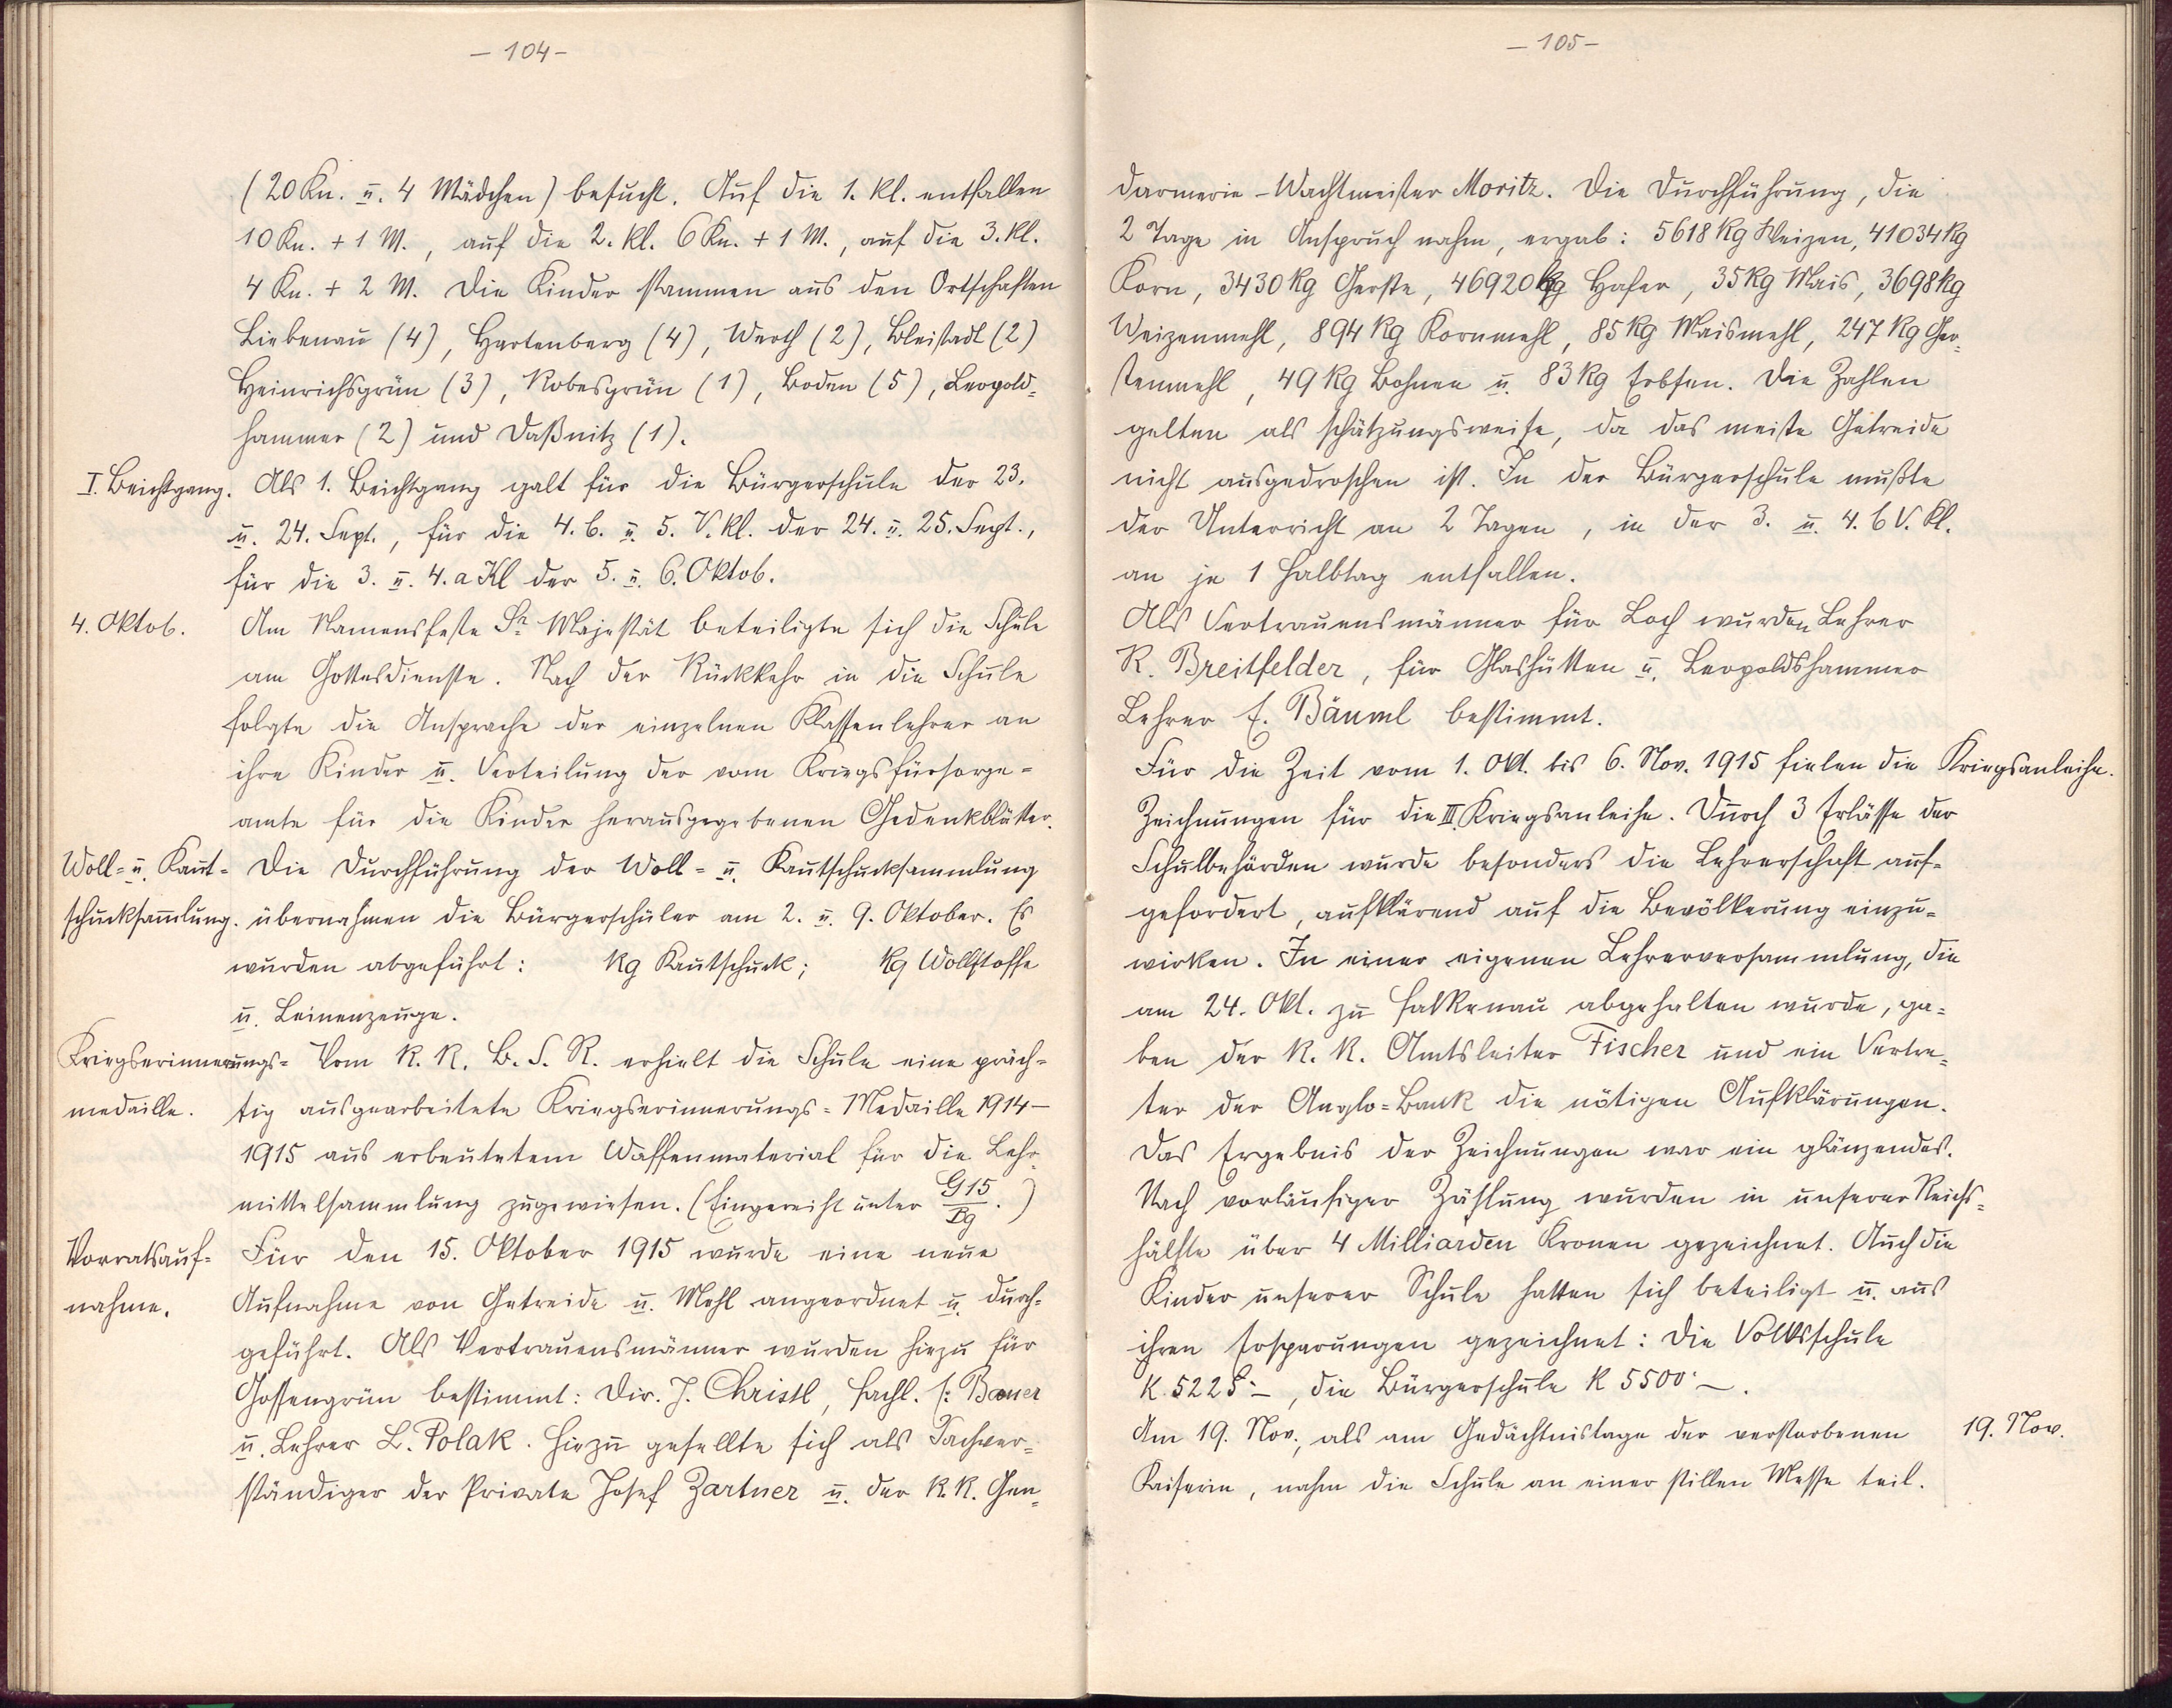 – 104 –
(20 Kn. u. 4 Mädchen) besucht. Auf die 1. Kl. entfallen
10 Kn. + 1 M., auf die 2. Kl. 6 Kn. + 1 M., auf die 3. Kl.
4 Kn. + 2 M. Die Kinder stammen aus den Ortschaften
Liebenau (4), Hartenberg (4), Werth (2), Bleistadt (2)
Heinrichsgrün (3), Robesgrün (1), Boden (5), Leopold-
hammer (2) und Daßnitz (1).
I. Beichtgang. Als 1. Beichtgang galt für die Bürgerschule der 23.
u. 24. Sept., für die 4. b. u. 5. V. Kl. der 24. u. 25. Sept.,
für die 3. u. 4. a Kl der 5. u. 6. Oktob.
4. Oktob. Am Namensfeste Sr. Majestät beteiligte sich die Schule
am Gottesdienste. Nach der Rückkehr in die Schule
folgte die Ansprache der einzelnen Klassenlehrer an
ihre Kinder u. Verteilung der vom Kriegsfürsorge-
amte für die Kinder herausgegebenen Gedenkblätter.
Woll- u. Kaut- Die Durchführung der Woll- u. Kautschucksammlung
schucksam̅lung. übernahmen die Bürgerschüler am 2. u. 9. Oktober. Es
wurden abgeführt: kg Kautschuck; kg Wollstoffe
u. Leinenzeuge.
Kriegserinnerungs- Vom K. K. B. S. R. erhielt die Schule eine präch-
medaille. tig ausgearbeitete Kriegserinnerungs-Medaille 1914–
1915 aus erbeutetem Waffenmaterial für die Lehr-
mittelsammlung zugewiesen. (Eingereiht unter G15/Bg.)
Vorratsauf- Für den 15. Oktober 1915 wurde eine neue
nahme. Aufnahme von Getreide u. Mehl angeordnet u. durch-
geführt. Als Vertrauensmänner wurden hiezu für
Gossengrün bestimmt: Dir. J. Christl, Fachl. F. Bauer
u. Lehrer L. Polak. Hiezu gesellte sich als Sachver-
ständiger der Private Josef Zartner u. der K. K. Gen-
– 105 –
darmerie-Wachtmeister Moritz. Die Durchführung, die
2 Tage in Anspruch nahm, ergab: 5618 kg Weizen, 41034 kg
Korn, 3430 kg Gerste, 46920 kg Hafer, 35 kg Mais, 3698 kg
Weizenmehl, 894 kg Kornmehl, 85 kg Maismehl, 247 kg Ger-
stenmehl, 49 kg Bohnen u. 83 kg Erbsen. Die Zahlen
gelten als schätzungsweise, da das meiste Getreide
nicht ausgedroschen ist. In der Bürgerschule mußte
der Unterricht an 2 Tagen, in der 3. u. 4. b V. Kl.
an je 1 Halbtag entfallen.
Als Vertrauensmänner für Loch wurden Lehrer
R. Breitfelder, für Glashütten u. Leopoldshammer
Lehrer E. Bäuml bestimmt.
Für die Zeit vom 1. Okt. bis 6. Nov. 1915 fielen die Kriegsanleihe.
Zeichnungen für die III. Kriegsanleihe. Durch 3 Erlässe der
Schulbehörden wurde besonders die Lehrerschaft auf-
gefordert, aufklärend auf die Bevölkerung einzu-
wirken. In einer eigenen Lehrerversammlung, die
am 24. Okt. zu Falkenau abgehalten wurde, ga-
ben der K. K. Amtsleiter Fischer und ein Vertre-
ter der Anglo-Bank die nötigen Aufklärungen.
Das Ergebnis der Zeichnungen war ein glänzendes.
Nach vorläufiger Zählung wurden in unserer Reichs-
hälfte über 4 Milliarden Kronen gezeichnet. Auch die
Kinder unserer Schule hatten sich beteiligt u. aus
ihren Ersparungen gezeichnet: Die Volksschule
K. 5225·–, die Bürgerschule K 5500·–.
Am 19. Nov., als am Gedächtnistage der verstorbenen 19. Nov.
Kaiserin, nahm die Schule an einer stillen Messe teil.